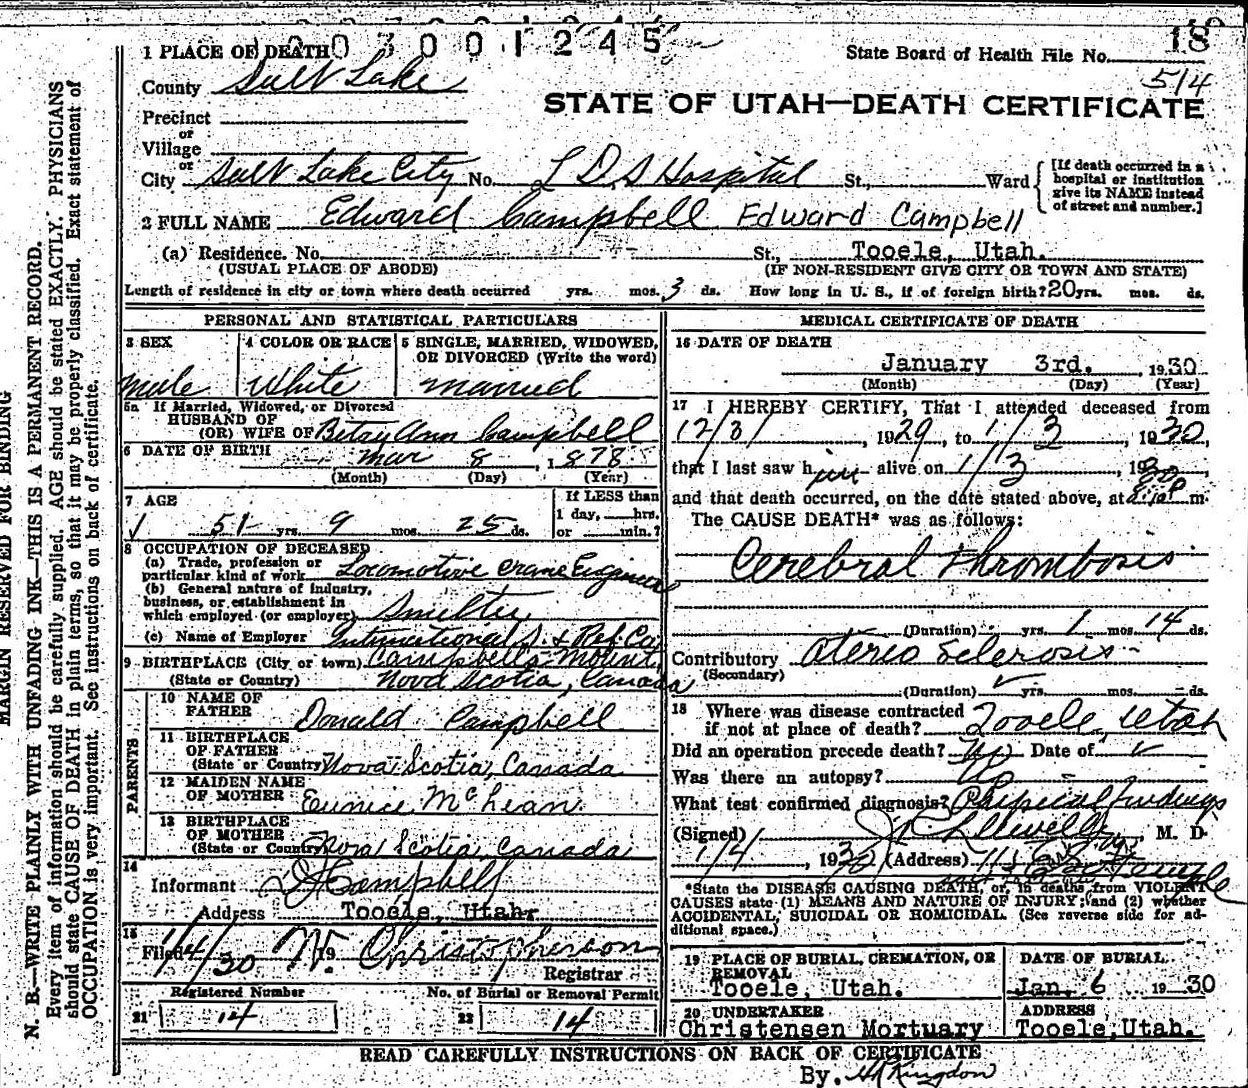 1 PLACE OF DEATH
1 0 0 3 0 0 1 2 4 5
State Board of Health File No. 18
514
County Salt Lake
STATE OF UTAH—DEATH CERTIFICATE
Precinct
or
Village
or
City Salt Lake City No. L D S Hospital St., Ward
[If death occurred in a hospital or institution give its NAME instead of street and number.]
2 FULL NAME Edward Campbell Edward Campbell
(a) Residence. No. St., Tooele, Utah.
(USUAL PLACE OF ABODE) (IF NON-RESIDENT GIVE CITY OR TOWN AND STATE)
Length of residence in city or town where death occurred yrs. mos. 3 ds. How long in U. S., if of foreign birth? 20 yrs. mos. ds.
PERSONAL AND STATISTICAL PARTICULARS
3 SEX
male
4 COLOR OR RACE
White
5 SINGLE, MARRIED, WIDOWED, OR DIVORCED (Write the word)
married
5a If Married, Widowed, or Divorced
HUSBAND OF
(OR) WIFE OF Betsy Ann Campbell
6 DATE OF BIRTH Mar 8, 1878
(Month) (Day) (Year)
7 AGE
51 yrs. 9 mos. 25 ds.
If LESS than
1 day, hrs.
or min.?
8 OCCUPATION OF DECEASED
(a) Trade, profession or
particular kind of work Locomotive Crane Engineer
(b) General nature of industry,
business, or establishment in
which employed (or employer) Smelter
(c) Name of Employer International S. & Ref. Co.
9 BIRTHPLACE (City or town) Campbells Mount,
(State or Country) Nova Scotia, Canada
PARENTS
10 NAME OF
FATHER Donald Campbell
11 BIRTHPLACE
OF FATHER
(State or Country) Nova Scotia, Canada
12 MAIDEN NAME
OF MOTHER Eunice McLean
13 BIRTHPLACE
OF MOTHER
(State or Country) Nova Scotia, Canada
14
Informant Campbell
Address Tooele, Utah
15
Filed 1/4/30 19 Christopherson
Registrar
Registered Number
21 14
No. of Burial or Removal Permit
22 14
MEDICAL CERTIFICATE OF DEATH
16 DATE OF DEATH
January 3rd. , 1930
(Month) (Day) (Year)
17 I HEREBY CERTIFY, That I attended deceased from
12/31, 1929, to 1/3, 1930,
that I last saw him alive on 1/3, 1930,
and that death occurred, on the date stated above, at m.
The CAUSE DEATH* was as follows:
Cerebral Thrombosis
(Duration) yrs. 1 mos. 14 ds.
Contributory Aterio Sclerosis
(Secondary)
(Duration) yrs. mos. ds.
18 Where was disease contracted
if not at place of death? Tooele, Utah
Did an operation precede death? No Date of
Was there an autopsy? No
What test confirmed diagnosis? Physical findings
(Signed) M. D.
1/4, 1930 (Address)
*State the DISEASE CAUSING DEATH, or, in deaths from VIOLENT
CAUSES state (1) MEANS AND NATURE OF INJURY; and (2) whether
ACCIDENTAL, SUICIDAL OR HOMICIDAL. (See reverse side for ad-
ditional space.)
19 PLACE OF BURIAL, CREMATION, OR
REMOVAL
Tooele, Utah.
DATE OF BURIAL
Jan. 6 1930
20 UNDERTAKER
Christensen Mortuary
ADDRESS
Tooele, Utah.
READ CAREFULLY INSTRUCTIONS ON BACK OF CERTIFICATE
By. Kingdon
MARGIN RESERVED FOR BINDING
N. B.—WRITE PLAINLY WITH UNFADING INK—THIS IS A PERMANENT RECORD.
Every item of information should be carefully supplied. AGE should be stated EXACTLY. PHYSICIANS
should state CAUSE OF DEATH in plain terms, so that it may be properly classified. Exact statement of
OCCUPATION is very important. See instructions on back of certificate.